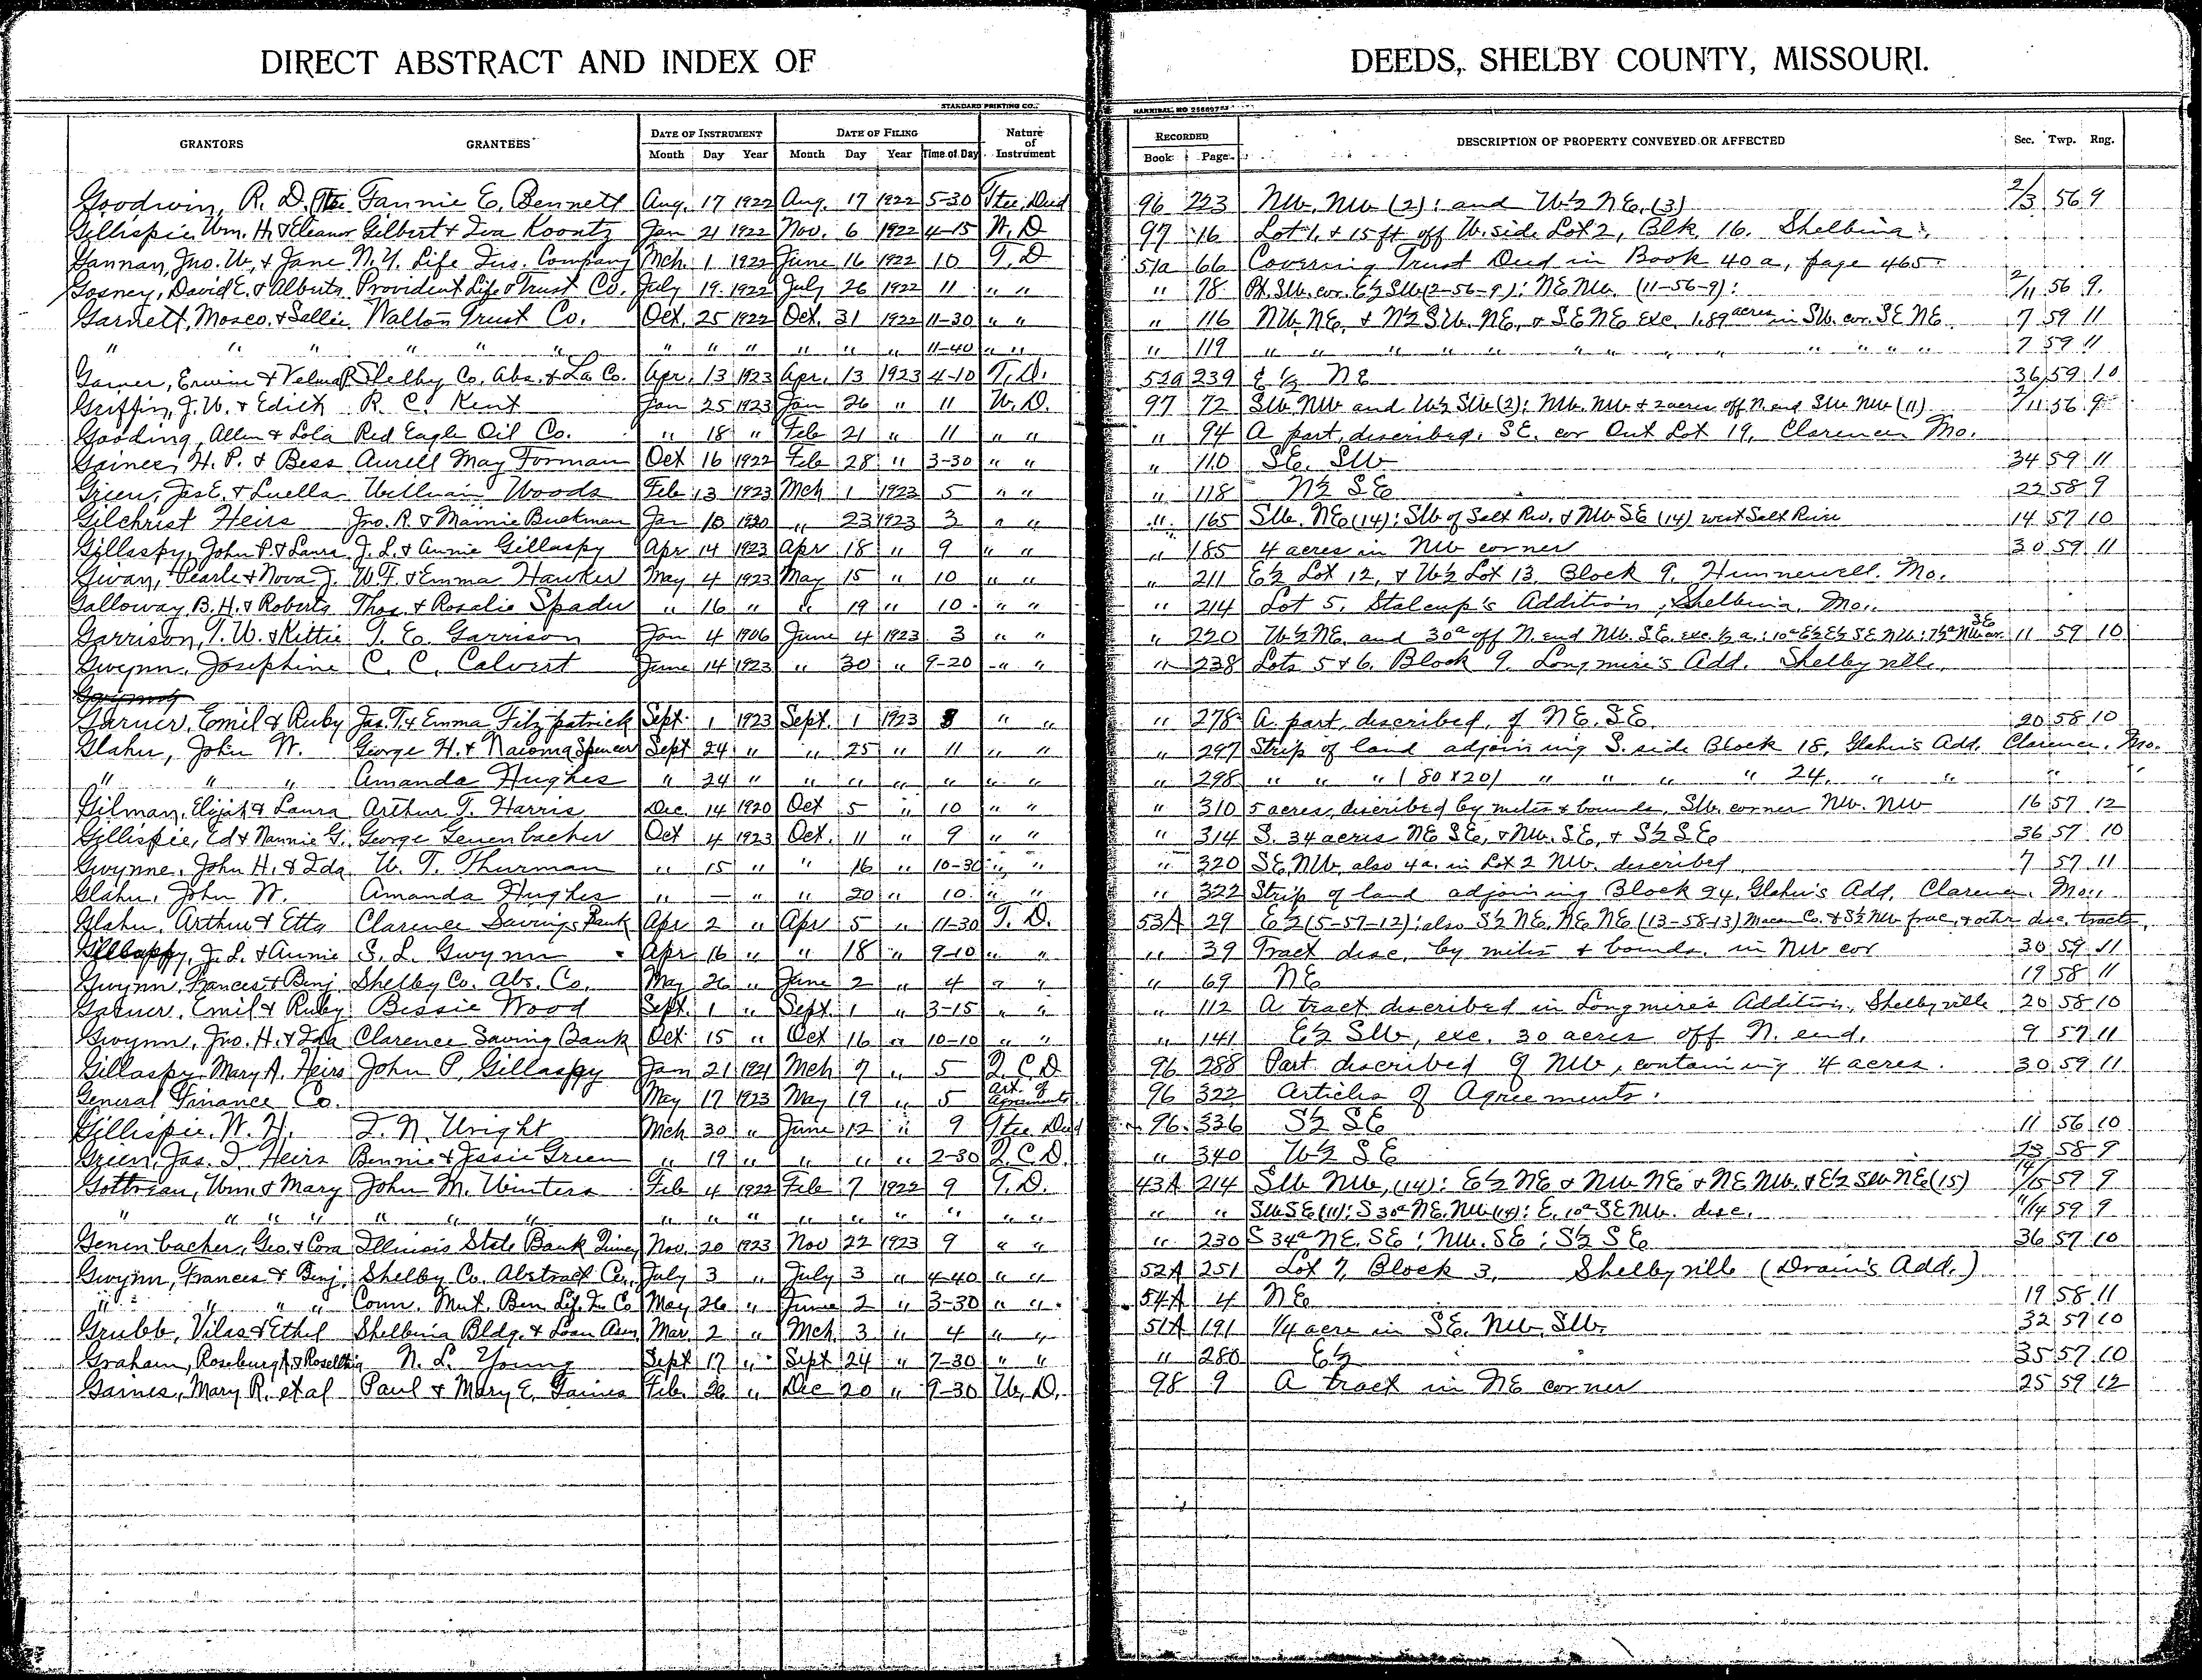 DIRECT ABSTRACT AND INDEX OF DEEDS, SHELBY COUNTY, MISSOURI.
STANDARD PRINTING CO., HANNIBAL, MO
GRANTORS GRANTEES DATE OF INSTRUMENT DATE OF FILING Nature of Instrument RECORDED DESCRIPTION OF PROPERTY CONVEYED OR AFFECTED Sec. Twp. Rng.
Month Day Year Month Day Year Time of Day Book Page
Goodwin, R. D. Tee Fannie E. Bennett Aug. 17 1922 Aug. 17 1922 5-30 Ttee Deed 96 223 NW. NW (2): and W½ NE. (3) 2/3 56 9
Gillispie, Wm. H. & Eleanor Gilbert & Iva Koontz Jan 21 1922 Nov. 6 1922 4-15 W. D 97 16 Lot 1, & 15 ft off W. side Lot 2, Blk. 16. Shelbina.
Gannan, Jno. W. & Jane N.Y. Life Ins. Company Mch. 1 1922 June 16 1922 10 T. D 51a 66 Covering Trust Deed in Book 40a, page 465
Gosney, David E. & Alberta Provident Life & Trust Co. July 19 1922 July 26 1922 11 " " " 78 Pt. SW. cor. E½ SW (2-56-9): NE NW. (11-56-9): 2/11 56 9.
Garnett, Mosco. & Sallie Walton Trust Co. Oct. 25 1922 Oct. 31 1922 11-30 " " " 116 NW. NE. & N½ SW. NE. & SE NE exc. 1.89 acres in SW. cor. SE NE 7 59 11
" " " " " " " " " " " " 11-40 " " " 119 " " " " " " " " " " " " " " 7 59 11
Garner, Erwin & Velma R. Shelby Co. Abs. & La. Co. Apr. 13 1923 Apr. 13 1923 4-10 T. D. 52a 239 E ½ NE 36 59 10
Griffin, J. W. & Edith R. C. Kent Jan 25 1923 Jan 26 " 11 W. D. 97 72 SW NW and W½ SW (2): NW. NW & 2 acres off N. end SW NW (11) 2/11 56 9
Gooding, Allen & Lola Red Eagle Oil Co. " 18 " Feb 21 " 11 " " " 94 A part, described, SE. cor Out Lot 19, Clarence, Mo.
Gaines, H. P. & Bess Aurell May Forman Oct 16 1922 Feb 28 " 3-30 " " " 110 SE. SW 34 59 11
Green, Jas E. & Luella William Woods Feb 13 1923 Mch 1 1923 5 " " " 118 N½ SE 22 58 9
Gilchrist Heirs Jno. R. & Mamie Buckman Jan 10 1920 " 23 1923 3 " " " 165 SW. NE (14): SW of Salt Riv. & NW SE (14) west Salt River 14 57 10
Gillaspy, John P. & Laura J. L. & Annie Gillaspy Apr 14 1923 Apr 18 " 9 " " " 185 4 acres in NW corner 30 59 11
Givan, Pearle & Nova J. W. F. & Emma Hawker May 4 1923 May 15 " 10 " " " 211 E½ Lot 12, & W½ Lot 13, Block 9. Hunnewell. Mo.
Galloway, B. H. & Roberta Thos. & Rosalie Spader " 16 " " 19 " 10 " " " 214 Lot 5, Stalcup's Addition, Shelbina, Mo.
Garrison, T. W. & Kittie T. E. Garrison Jan 4 1906 June 4 1923 3 " " " 220 W½ NE. and 30a off N. end NW. SE. exc. ½ a.: 10a E½ E½ SE NW: 7½a NW cor. SE 11 59 10
Gwynn, Josephine C. C. Calvert June 14 1923 " 30 " 9-20 " " " 238 Lots 5 & 6. Block 9. Longmire's Add. Shelbyville.
Garner, Emil & Ruby Jas. T. & Emma Fitzpatrick Sept. 1 1923 Sept. 1 1923 3 " " " 278 A part, described, of NE. SE. 20 58 10
Glahn, John W. George H. & Naioma Spencer Sept 24 " " 25 " 11 " " " 297 Strip of land adjoining S. side Block 18. Glahn's Add. Clarence, Mo.
" " " Amanda Hughes " 24 " " " " " " " " 298 " " " (80 x 20) " " " " 24. " " " "
Gilman, Elijah & Laura Arthur T. Harris Dec. 14 1920 Oct 5 " 10 " " " 310 5 acres, discribed by metes & bounds, SW. corner NW. NW 16 57 12
Gillispie, Ed & Nannie G. George Genenbacher Oct 4 1923 Oct. 11 " 9 " " " 314 S. 34 acres NE SE, & NW. SE, & S½ SE 36 57 10
Gwynne, John H. & Ida W. T. Thurman " 15 " " 16 " 10-30 " " " 320 SE. NW, also 4a. in Lot 2 NW. described 7 57 11
Glahn, John W. Amanda Hughes " — " " 20 " 10 " " " 322 Strip of land adjoining Block 24, Glahn's Add. Clarence, Mo.
Glahn, Arthur & Etta Clarence Savings Bank Apr 2 " Apr 5 " 11-30 T. D. 53A 29 E½ (5-57-12): also S½ NE. NE. NE (13-58-13) Macon Co. & S½ NW frac, & othr desc. tracts.
Gillaspy, J. L. & Annie S. L. Gwynn Apr 16 " " 18 " 9-10 " " " 39 Tract desc. by metes & bounds, in NW cor 30 59 11
Gwynn, Frances & Benj. Shelby Co. Abs. Co. May 26 " June 2 " 4 " " " 69 NE 19 58 11
Garner, Emil & Ruby Bessie Wood Sept. 1 " Sept. 1 " 3-15 " " " 112 A tract described in Longmire's Addition, Shelbyville 20 58 10
Gwynn, Jno. H. & Ida Clarence Saving Bank Oct 15 " Oct 16 " 10-10 " " " 141 E½ SW, exc. 30 acres off N. end. 9 57 11
Gillaspy Mary A. Heirs John P. Gillaspy Jan 21 1921 Mch 7 " 5 Q. C. D 96 288 Part described of NW, containing 4 acres. 30 59 11
General Finance Co. May 17 1923 May 19 " 5 Art. of Agreements 96 322 Articles of Agreements.
Gillispie, W. H. T. N. Wright Mch 30 " June 12 " 9 Ttee Deed 96 336 S½ SE 11 56 10
Green, Jas. T. Heirs Bennie & Jessie Green " 19 " " " " 2-30 Q. C. D. " 340 W½ SE 23 58 9
Gottman, Wm. & Mary John M. Winters Feb 4 1922 Feb 7 1922 9 T. D. 43A 214 SW NW, (14): E½ NE & NW NE & NE NW. & E½ SW NE (15) 14/15 59 9
" " " " " " " " " " " " " " " " " " SW SE (11): S 30a NE. NW (14): E. 10a SE NW. desc. 11/14 59 9
Genenbacher, Geo. & Cora Illinois State Bank Quincy Nov. 20 1923 Nov 22 1923 9 " " " 230 S 34a NE. SE: NW. SE: S½ SE 36 57 10
Gwynn, Frances & Benj. Shelby Co. Abstract Co. July 3 " July 3 " 4-40 " " 52A 251 Lot 7, Block 3, Shelbyville (Drain's Add.)
" " " " Conn. Mut. Ben Life Ins Co May 26 " June 2 " 3-30 " " 54A 4 NE 19 58 11
Grubb, Vilas & Ethel Shelbina Bldg. & Loan Assn Mar. 2 " Mch. 3 " 4 " " 51A 191 1/4 acre in SE. NW. SW. 32 57 10
Graham, Roseburg A. & N. L. Young Sept 17 " Sept 24 " 7-30 " " " 280 E½ 35 57 10
Gaines, Mary R. et al Paul & Mary E. Gaines Feb. 26 " Dec 20 " 9-30 W. D. 98 9 A tract in NE corner 25 59 12